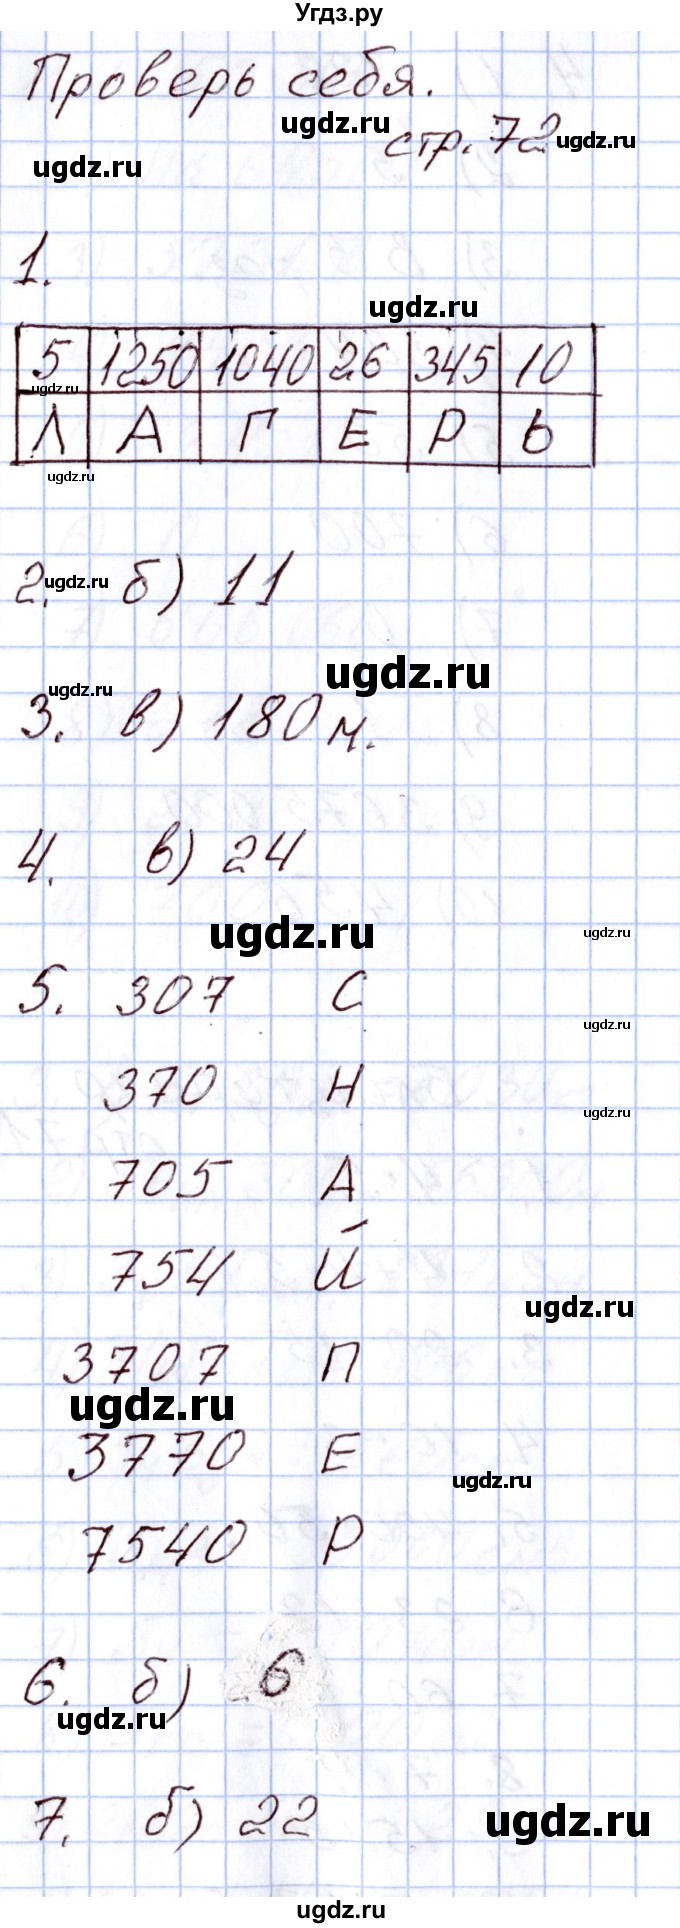 Угдз.ру
Проверь себя.
ugdz.ru
стр. 72 ugdz.ru
ugdz.ru
1.
ugdz.ru
5 1250 1040 26 345 10
ugdz.ru
Л А П Е Р Ь
ugdz.ru
2. б) 11
ugdz.ru
ugdz.ru
ugdz.ru
3. в) 180 м.
4. в) 24
ugdz.ru ugdz.ru
5. 307 С
ugdz.ru
370 Н
ugdz.ru
705 А
754 Й
ugdz.ru
3707 П
ugdz.ru
3770 Е
ugdz.ru
7540 Р
6. б) 6
ugdz.ru
7. б) 22
ugdz.ru
ugdz.ru